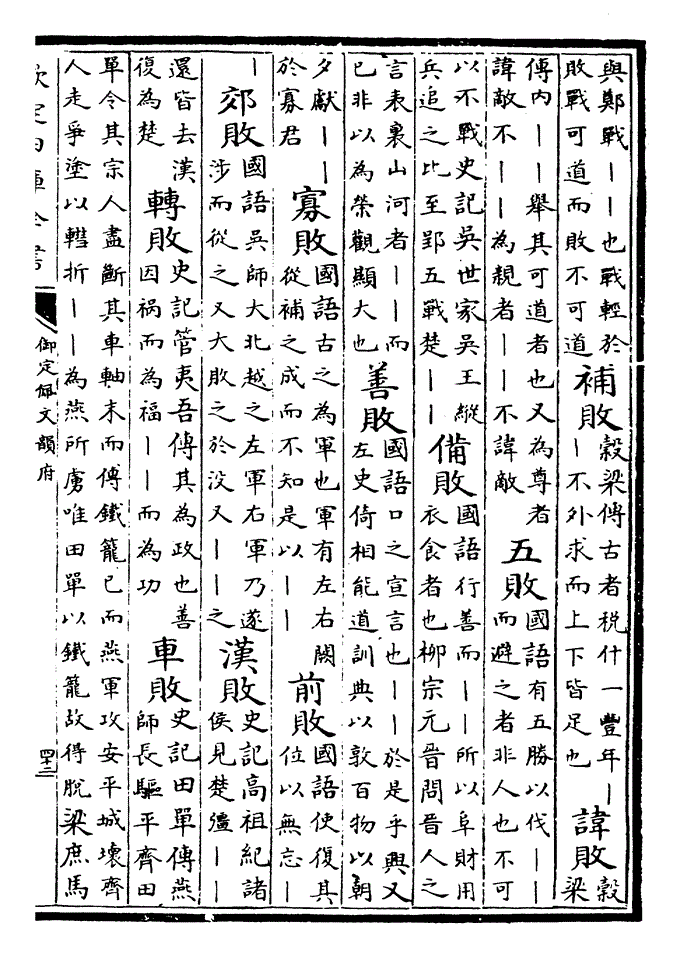 與鄭戰丨丨也戰輕於
敗戰可道而敗不可道
補敗
穀梁傳古者稅什一豐年丨
丨不外求而上下皆足也
諱敗
穀
梁
傳內丨丨舉其可道者也又為尊者
諱敵不丨丨為親者丨丨不諱敵
五敗
國語有五勝以伐丨丨
而避之者非人也不可
以不戰史記吳世家吳王縱
兵追之比至郢五戰楚丨丨
備敗
國語行善而丨丨所以阜財用
衣食者也柳宗元晉問晉人之
言表裏山河者丨丨而
已非以為榮觀顯大也
善敗
國語口之宣言也丨丨於是乎興又
左史倚相能道訓典以敦百物以朝
夕獻丨丨
於寡君
寡敗
國語古之為軍也軍有左右闕
從補之成而不知是以丨丨
前敗
國語使復其
位以無忘丨
丨
郊敗
國語吳師大北越之左軍右軍乃遂
涉而從之又大敗之於沒又丨丨之
漢敗
史記高祖紀諸
侯見楚彊丨丨
還皆去漢
復為楚
轉敗
史記管夷吾傳其為政也善
因禍而為福丨丨而為功
車敗
史記田單傳燕
師長驅平齊田
單令其宗人盡斷其車軸末而傅鐵籠已而燕軍攻安平城壞齊
人走爭塗以轊折丨丨為燕所虜唯田單以鐵籠故得脫梁庶馬
欽定四庫全書
御定佩文韻府
四十二